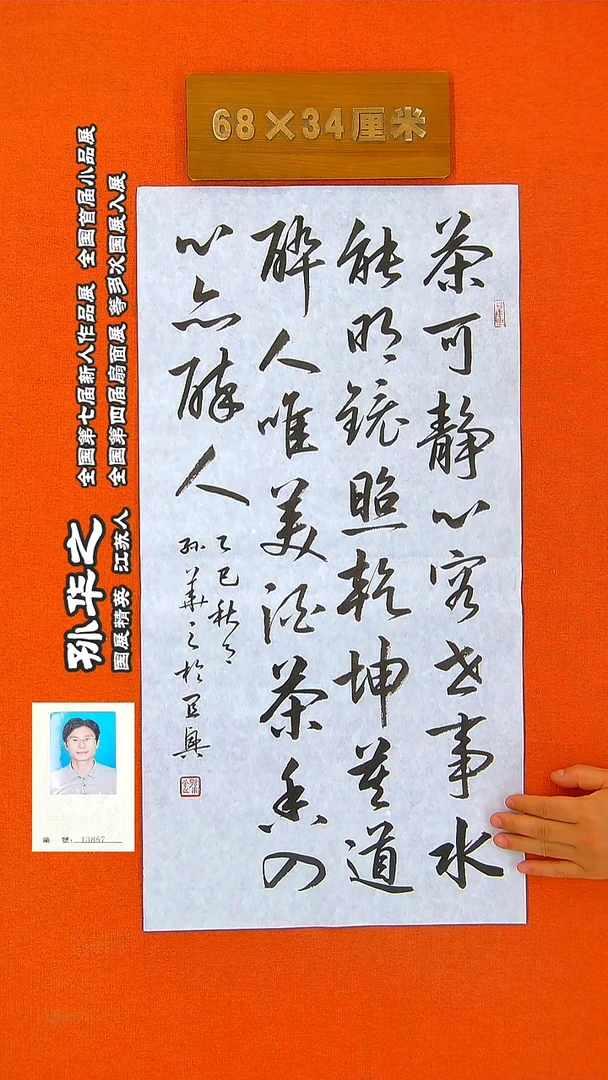 68×34厘米
茶可静心容世事水
能明镜照乾坤莫道
醉人唯美酒茶香入
心亦醉人
乙巳秋月
孙華之於宜興
全国第七届新人作品展 全国首届小品展
全国第四届扇面展 等多次国展入展
孙华之
国展精英 江苏人
编 号: